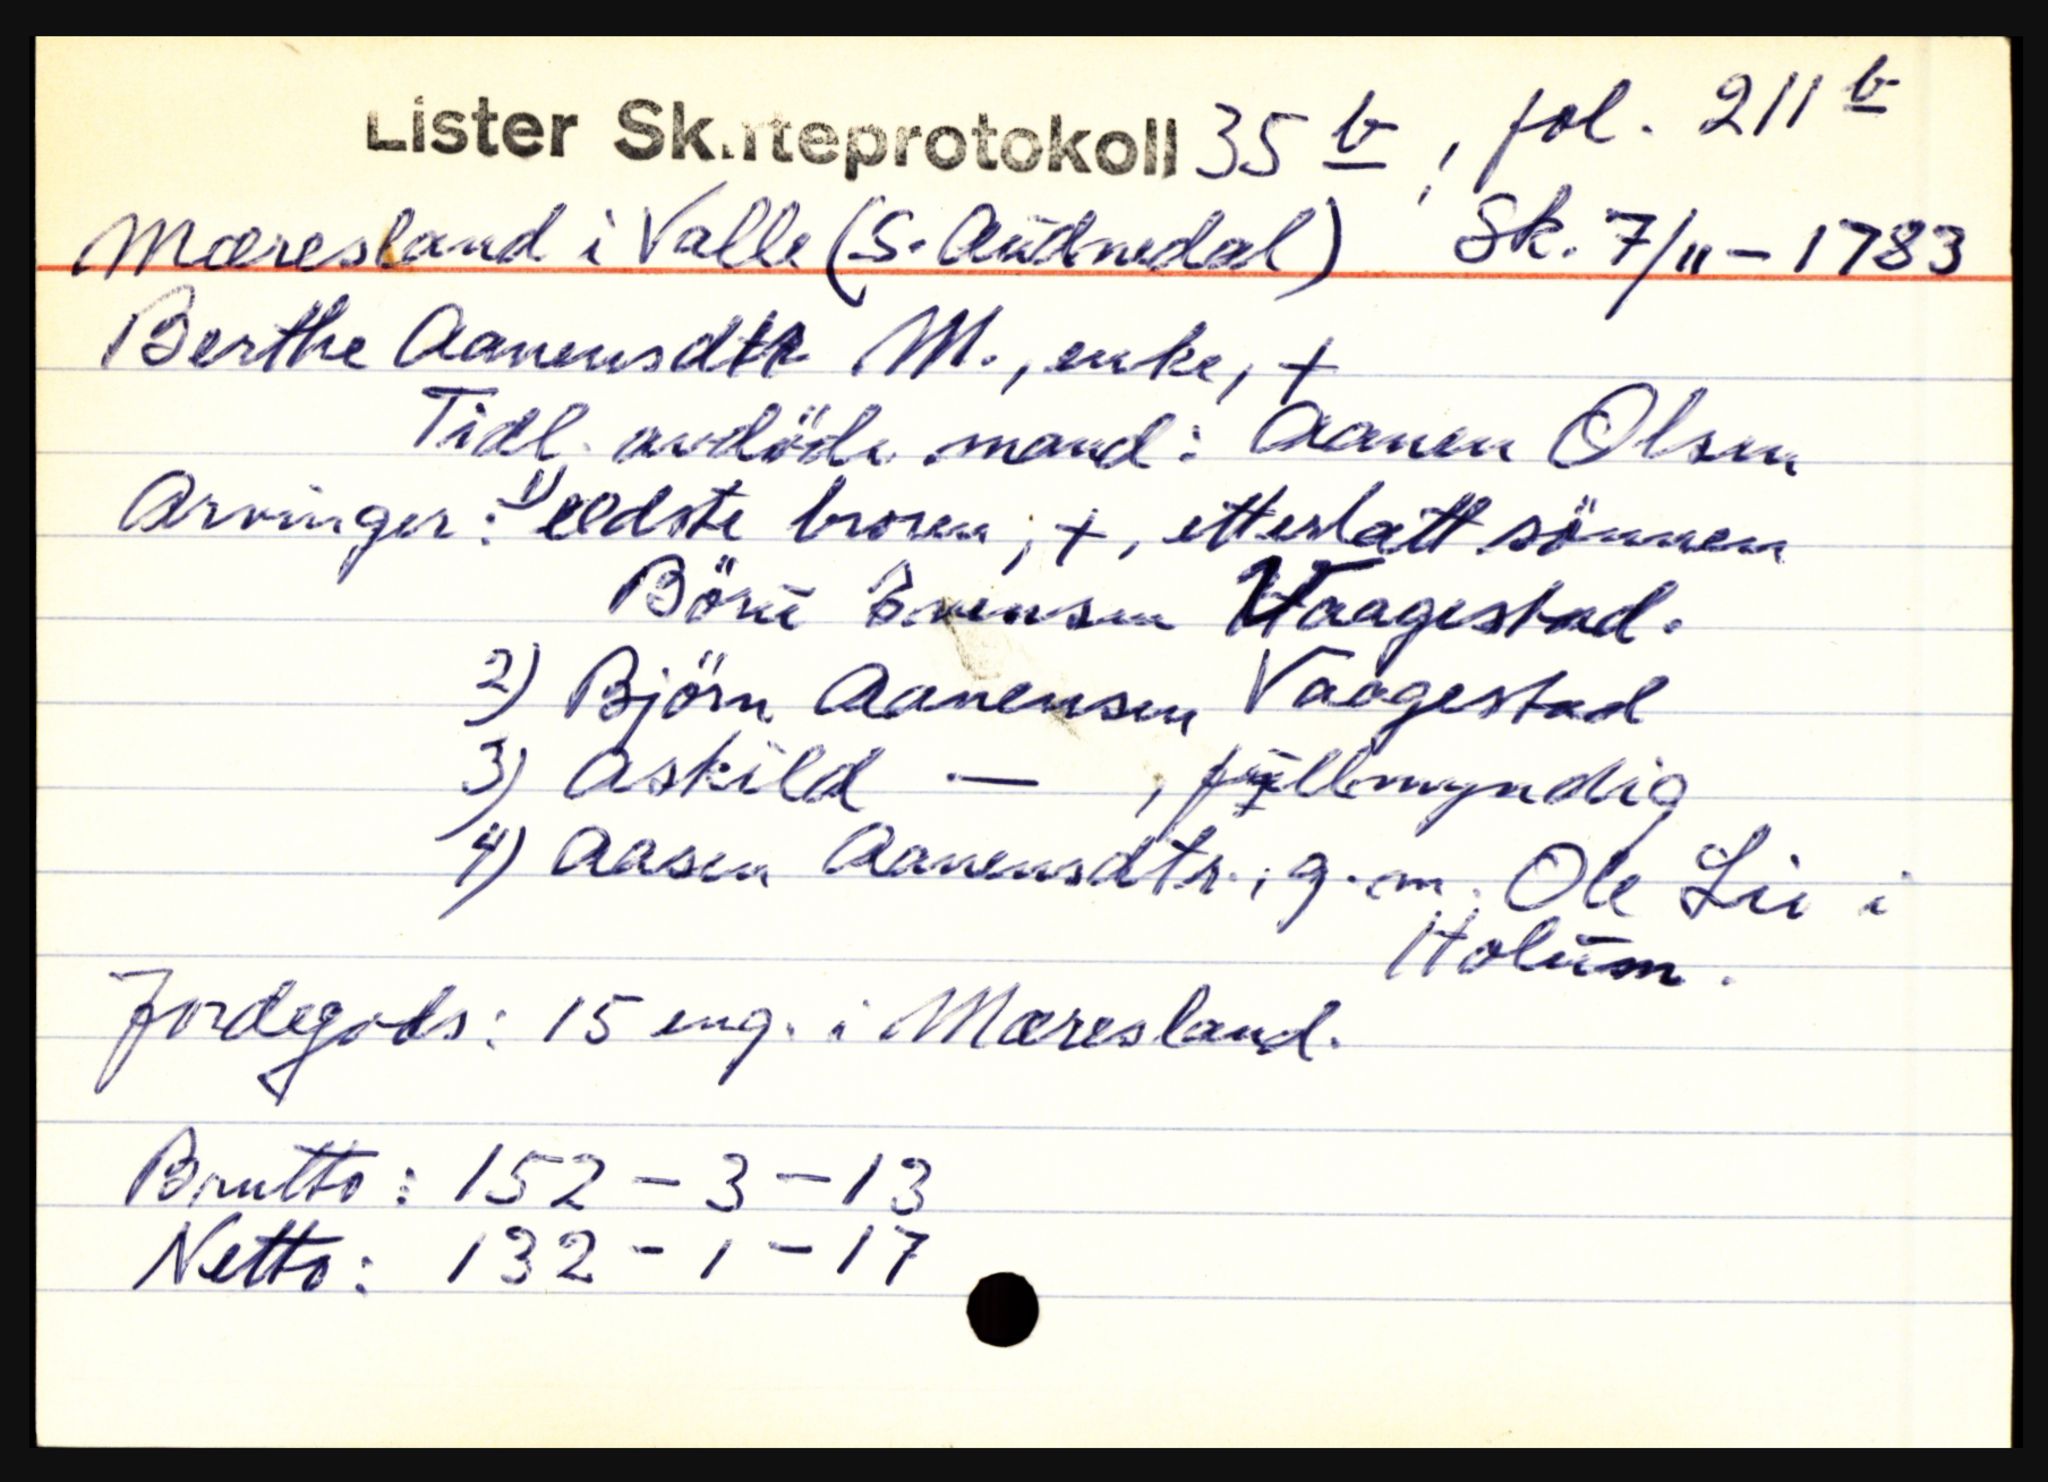 Lister Skifteprotokoll 35 b, fol. 211 b
Mæresland i Valle (S. Audnedal) Sk. 7/11 - 1783
Berthe Aanensdtr M., enke, +
Tidl. avdöde mand: Aanen Olsen
Arvinger: 1) eldste broren, +, etterlatt sönnen
Börü Evensen Vaagestad.
2) Björn Aanensen Vaagestad
3) Askild — , fullmyndig
4) Aasen Aanensdtr., g. m. Ole Lie i
Holum.
Jordegods: 15 eng. i Mæresland.
Brutto: 152 - 3 - 13
Netto: 132 - 1 - 17